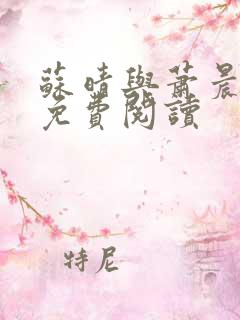 蘇晴與蕭晨
免費閱讀
特尼